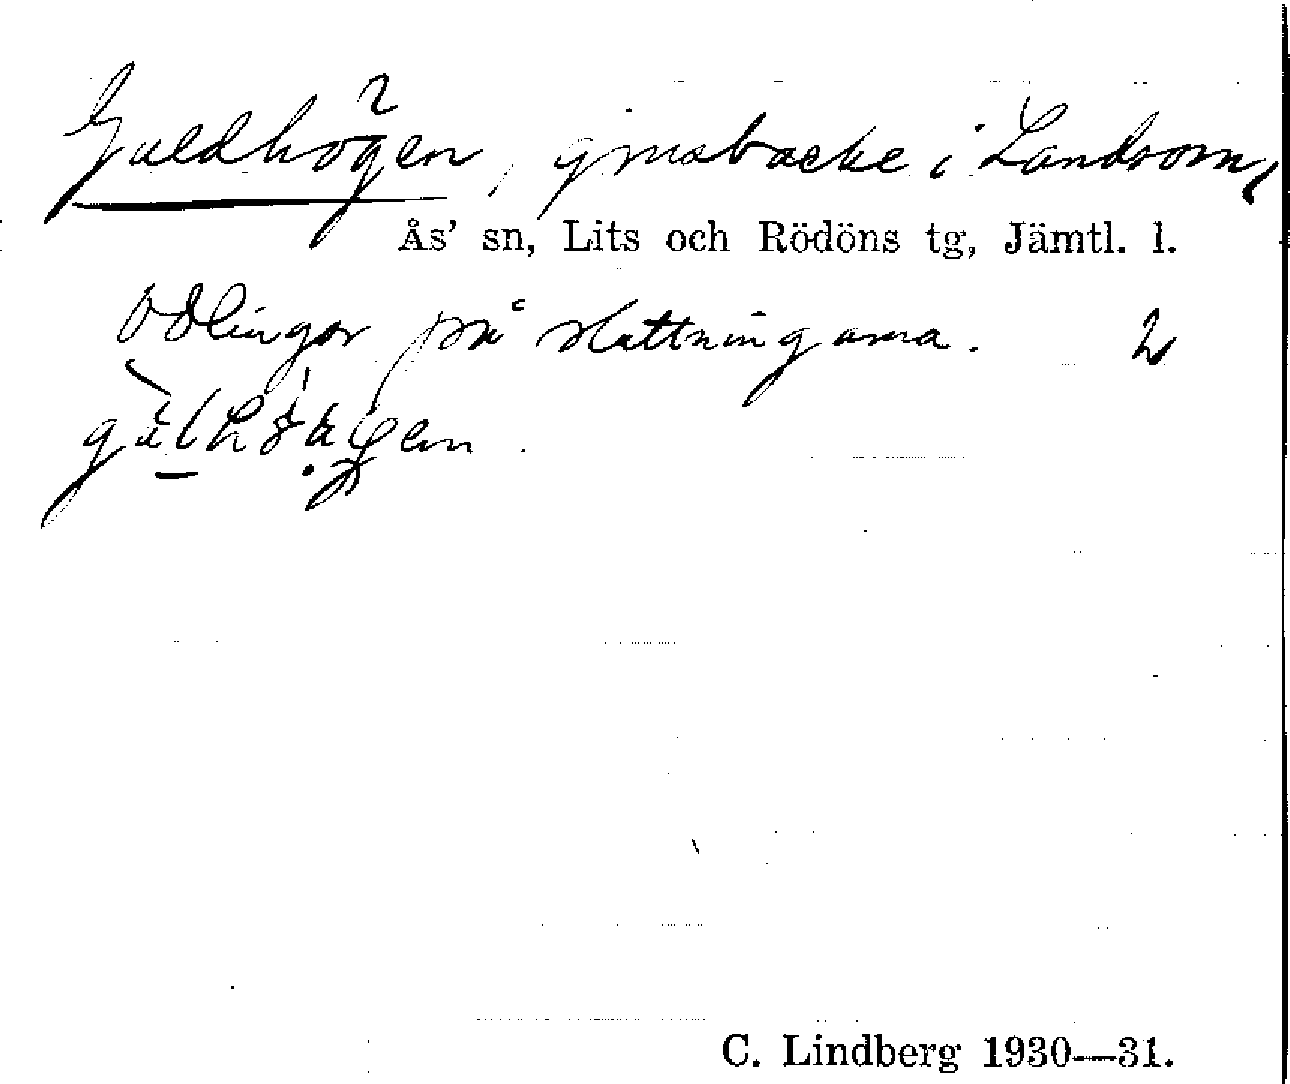 Guldhögen, grusbacke i Landsom,
Ås' sn, Lits och Rödöns tg, Jämtl. l.
Odlingar på sluttningarna. 2
C. Lindberg 1930—31.